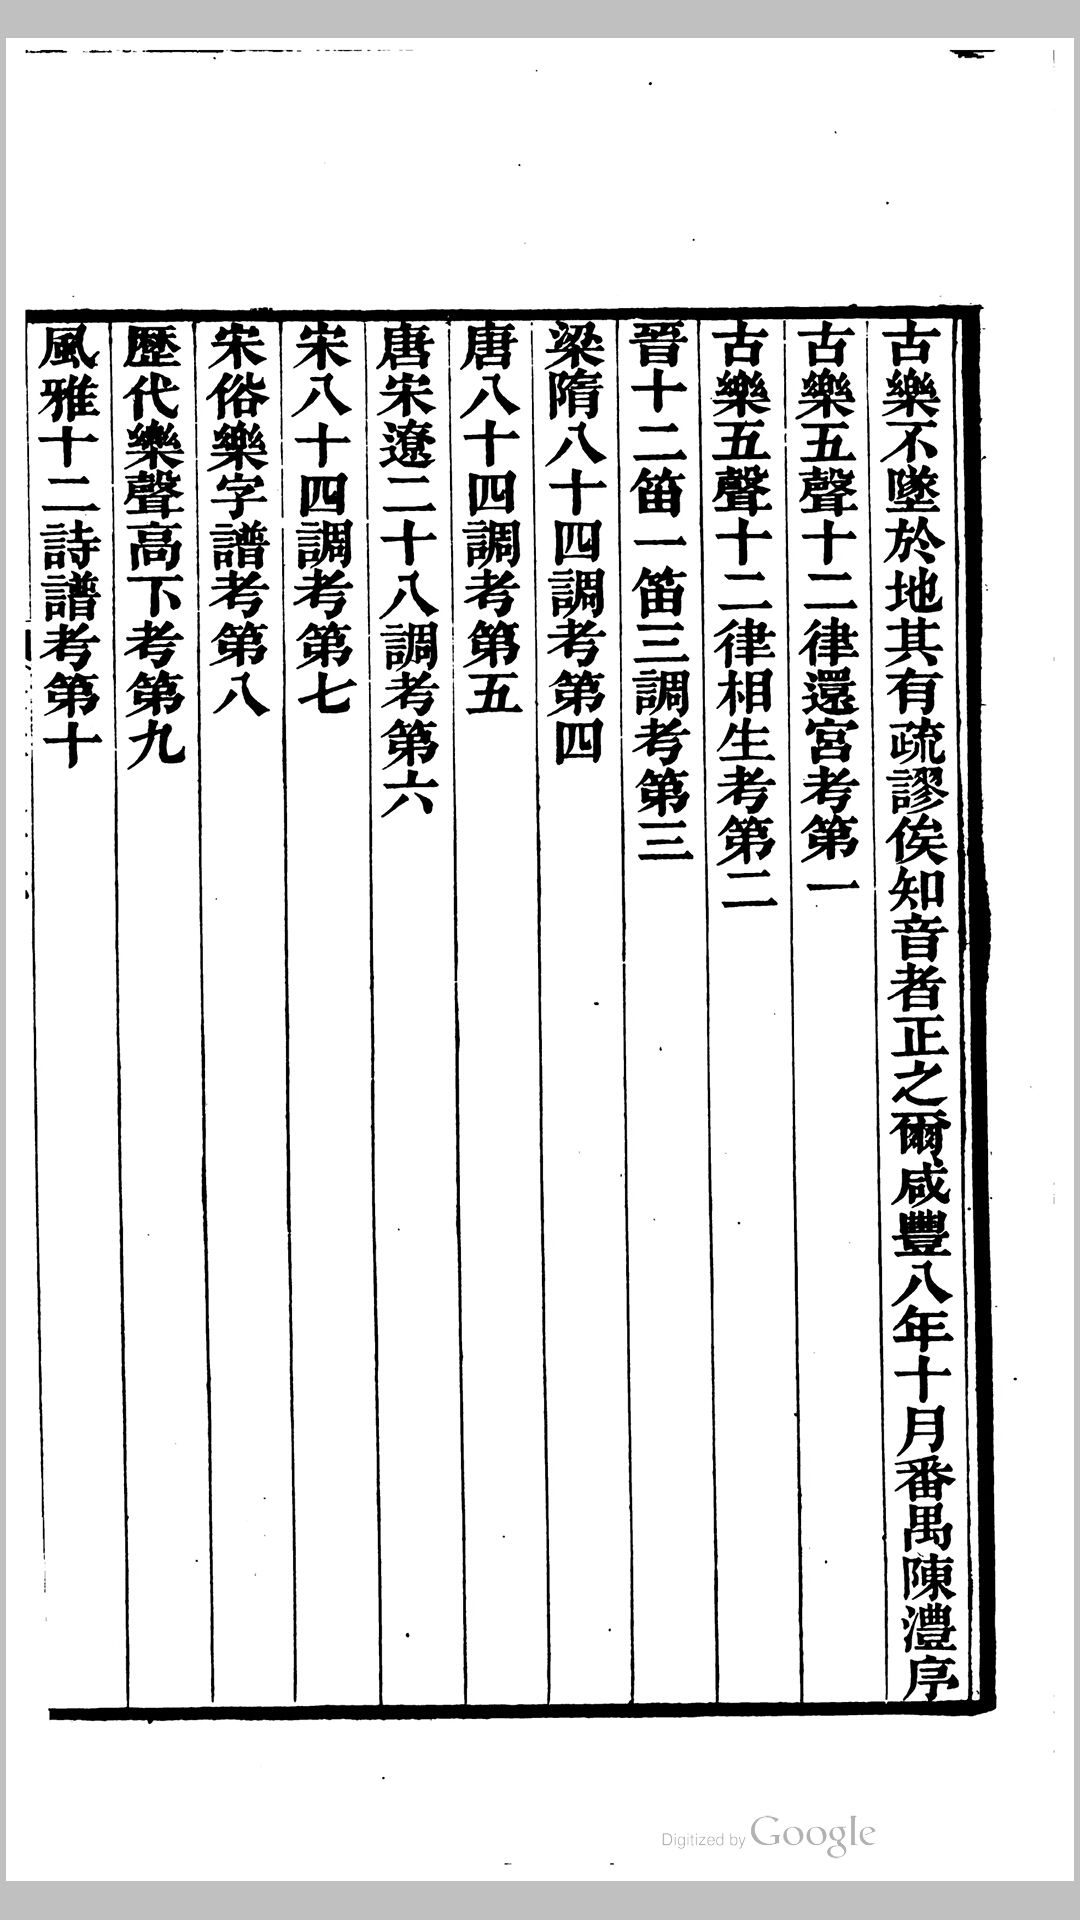 古樂不墜於地其有疏謬俟知音者正之爾咸豐八年十月番禺陳澧序
古樂五聲十二律還宮考第一
古樂五聲十二律相生考第二
晉十二笛一笛三調考第三
梁隋八十四調考第四
唐八十四調考第五
唐宋遼二十八調考第六
宋八十四調考第七
宋俗樂字譜考第八
歷代樂聲高下考第九
風雅十二詩譜考第十
Digitized by Google